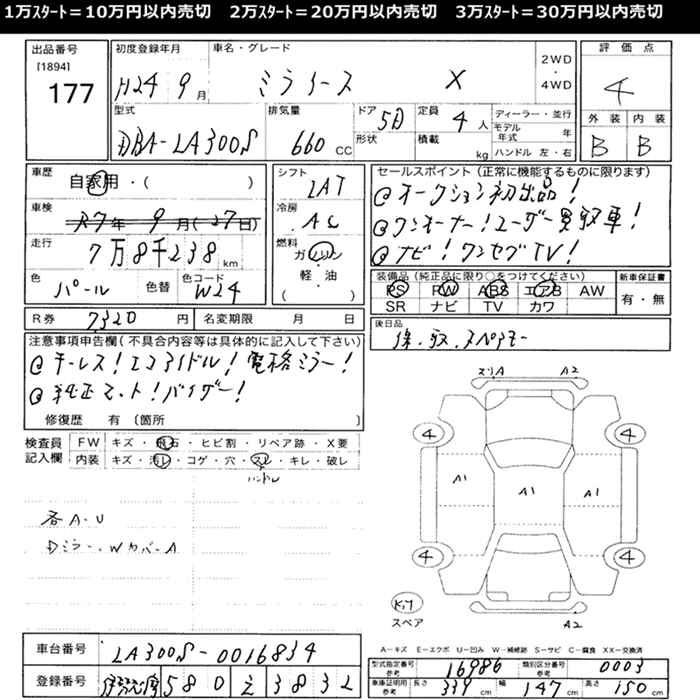 1万ｽﾀｰﾄ＝10万円以内売切　2万ｽﾀｰﾄ＝20万円以内売切　3万ｽﾀｰﾄ＝30万円以内売切
出品番号 初度登録年月 車名・グレード 2WD・4WD 評価点
[1894]
177 H24年9月 ミライース X 4
型式 排気量 ドア 5D 定員 4人 ディーラー・並行 外装 内装
DBA-LA300S 660cc 形状 積載 kg モデル年式 年 B B
ハンドル 左・右
車歴 自家用・( ) シフト LAT セールスポイント(正常に機能するものに限ります)
車検 R7年9月(27日) 冷房 AC @オークション初出品!
走行 7万8千238km 燃料 ガソリン・軽・油 ( ) @ワンオーナー!ユーザー買取車!
@ナビ!ワンセグTV!
色 パール 色替 色コード W24 装備品(純正品に限り○をつけてください) 新車保証書
PS PW ABS エアB AW 有・無
SR ナビ TV カワ
R券 7320円 名変期限 月 日 後日品
保.取.スペアキー
注意事項申告欄(不具合内容等は具体的に記入して下さい)
@キーレス!エコアイドル!電格ミラー!
@純正マット!バイザー!
修復歴 有(箇所 )
検査員記入欄 FW キズ・飛石・ヒビ割・リペア跡・X要
内装 キズ・汚レ・コゲ・穴・スレ・キレ・破レ
ハンドル
各A.U
Dミラー.Wカバー.A
スリA A2
4 4
A1 A1 A1
4 4
スペア A2
A－キズ E－エクボ U－凹み W－補修跡 S－サビ C－腐食 XX－交換済
車台番号 LA300S-0016834
型式指定番号 参考 16986 類別区分番号 参考 0003
登録番号 580 え 3832
車庫証明用 参考 長さ 339cm 幅 147cm 高さ 150cm